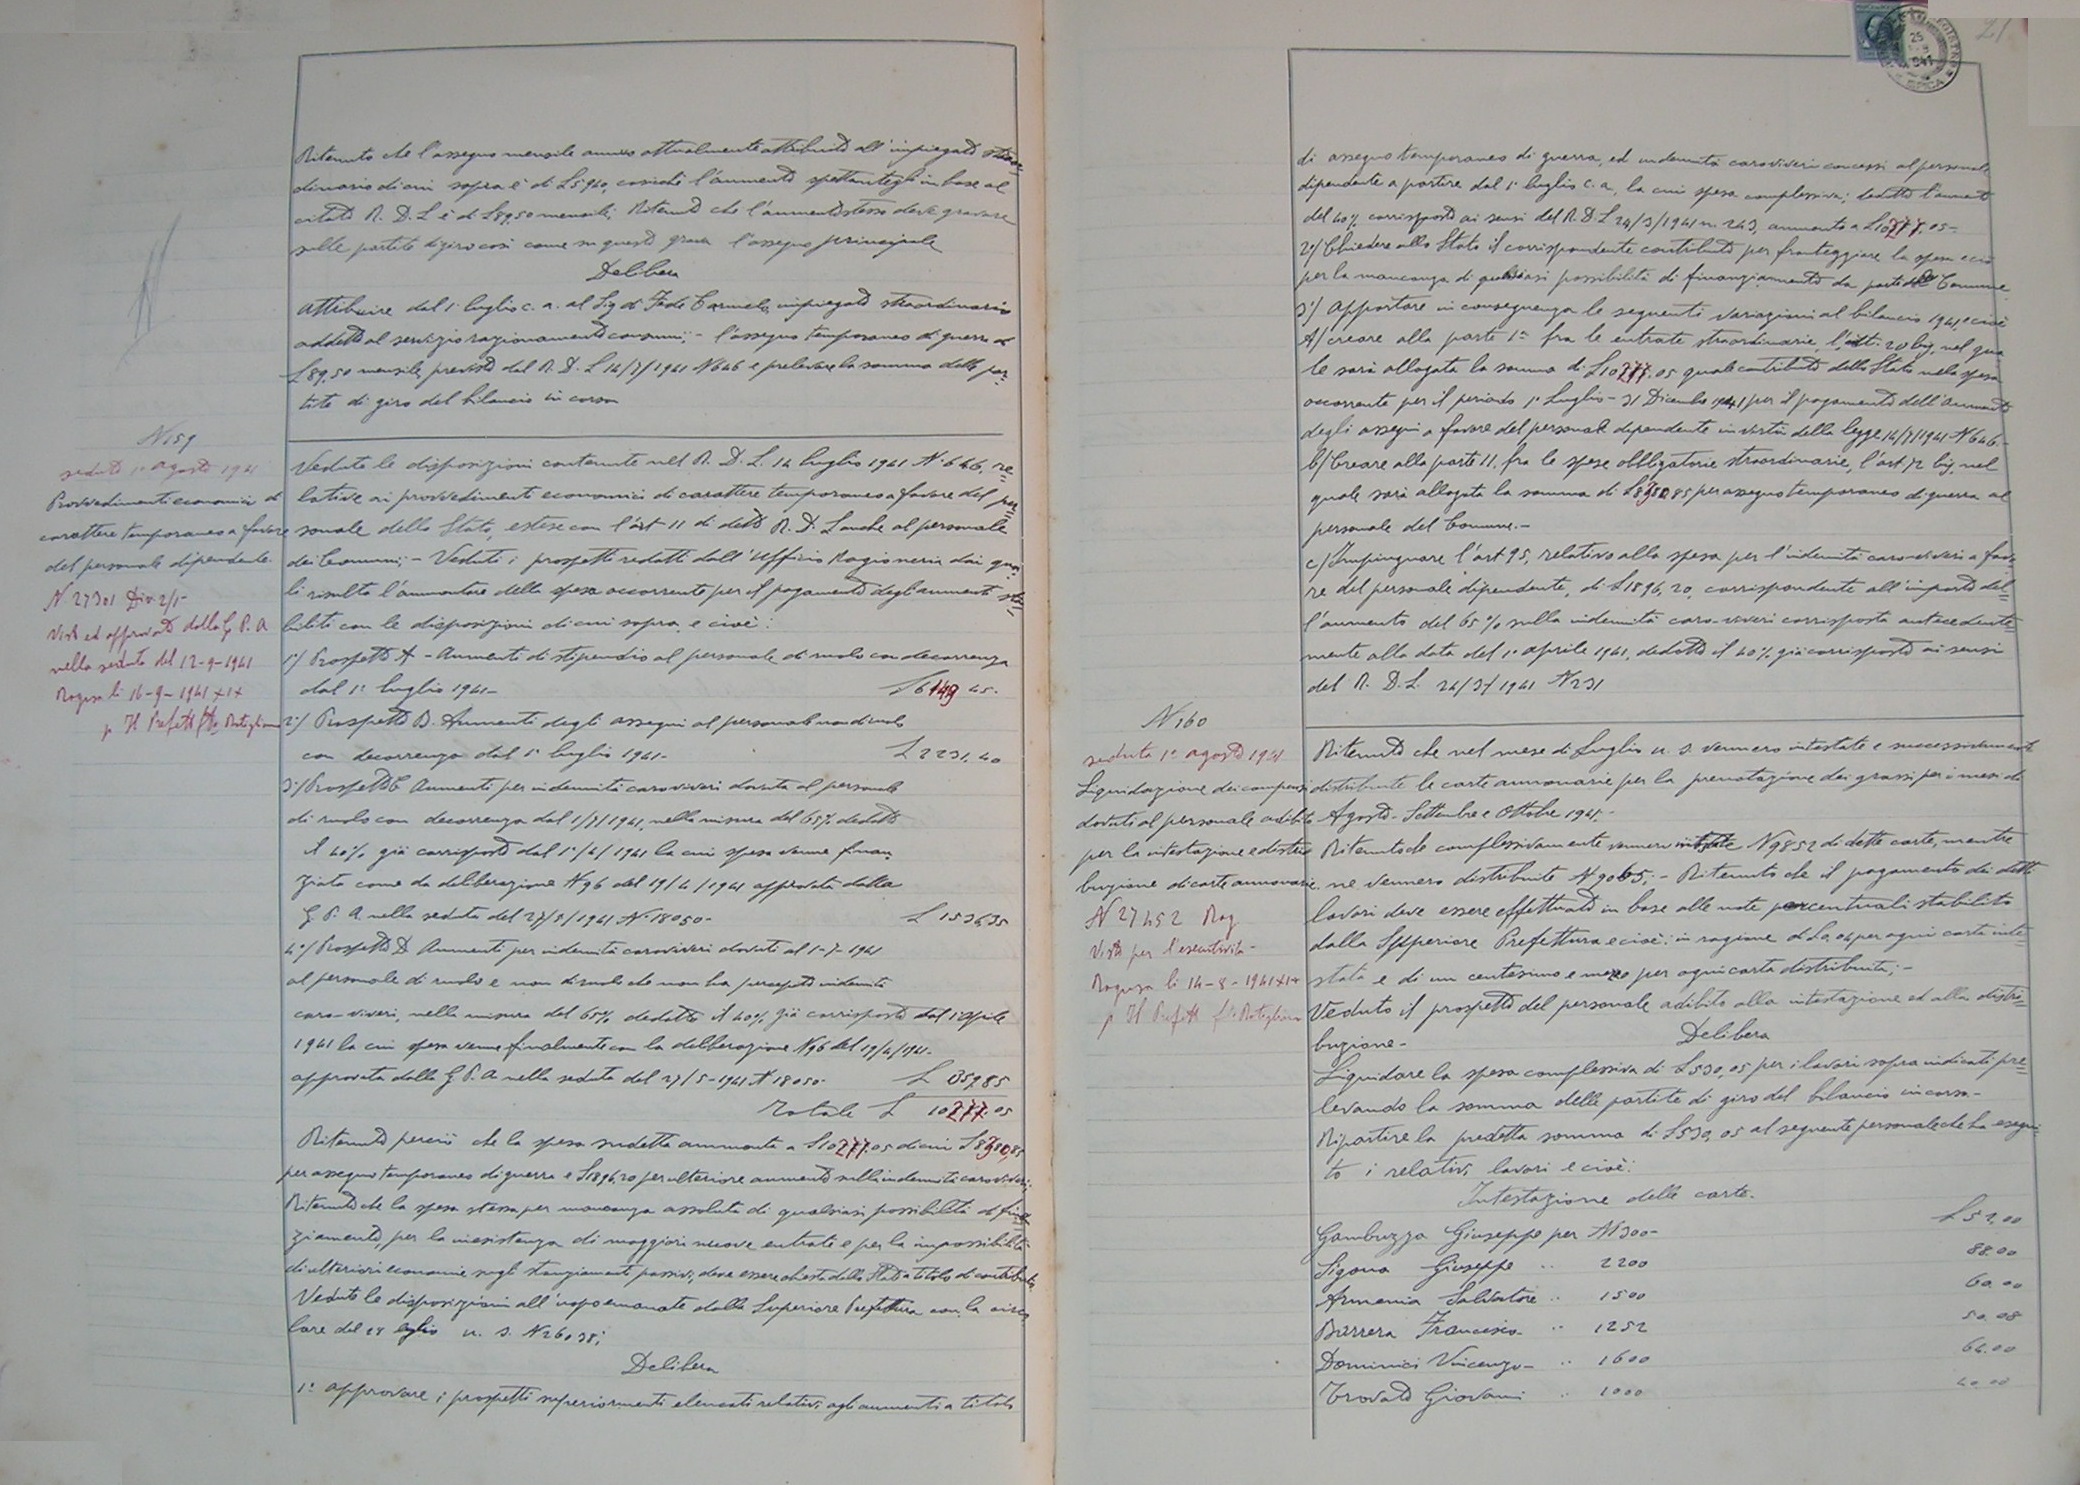 Ritenuto che l'assegno mensile annuo attualmente attribuito all'impiegato straor=
dinario di cui sopra è di L 5940, cosichè l'aumento spettantegli in base al
citato R. D. L è di L 89,50 mensile; Ritenuto che l'aumento stesso deve gravare
sulle partite di giro così come su questo grava l'assegno principale
Delibera
Attribuire dal 1° luglio c. a. al Sig di Fede Carmelo, impiegato straordinario
addetto al servizio razionamento consumi; - l'assegno temporaneo di guerra di
L 89,50 mensile, previsto dal R. D. L 14/7/1941 N 646 e prelevare la somma dalle par=
tite di giro del bilancio in corso
N 159
seduta 1° agosto 1941
Provvedimenti economici di
carattere temporaneo a favore
del personale dipendente.
N 27301 Div 2/1-
Visto ed approvato dalla G. P. A
nella seduta del 12-9-1941
Ragusa li 16-9-1941 XIX
p Il Prefetto
Vedute le disposizioni contenute nel R. D. L. 14 luglio 1941 N. 646, re=
lative ai provvedimenti economici di carattere temporaneo a favore del per=
sonale dello Stato, estese con l'art 11 di detto R. D. L anche al personale
dei Comuni; - Veduti i prospetti redatti dall'Ufficio Ragioneria dai qua=
li risulta l'ammontare della spesa occorrente per il pagamento degli aumenti sta=
biliti con le disposizioni di cui sopra, e cioè:
1°/ Prospetto A - Aumenti di stipendio al personale di ruolo con decorrenza
dal 1° luglio 1941- L 6149 45.
2°/ Prospetto B. Aumenti degli assegni al personale non di ruolo
con decorrenza dal 1° luglio 1941- L 2231.40
3°/ Prospetto C Aumenti per indennità caroviveri dovuta al personale
di ruolo con decorrenza dal 1/7/1941, nella misura del 65% dedotto
il 40% già corrisposto dal 1°/4/1941 la cui spesa venne finan
ziata come da deliberazione N 96 del 19/4/1941 approvata dalla
G P. A nella seduta del 27/5/1941 N. 18050- L 1536,35
4°/ Prospetto D Aumenti per indennità caroviveri dovuti al 1-7-1941
al personale di ruolo e non di ruolo che non ha percepito indennità
caro-viveri, nella misura del 65% dedotto il 40% già corrisposto dal 1° Aprile
1941 la cui spesa venne finalmente con la deliberazione N 96 del 19/4/1941-
approvata dalla G P. A nella seduta del 27/5-1941 N 18050- L 359,85
Totale L 10277.05
Ritenuto perciò che la spesa sudetta ammonta a L 10277.05 di cui L 8380,85
per assegno temporaneo di guerra e L 1896,20 per ulteriore aumento sull'indennità caroviveri;
Ritenuto che la spesa stessa per mancanza assoluta di qualsiasi possibilità di finan=
ziamento, per la inesistenza di maggiori nuove entrate e per la impossibilità
di ulteriori economie sugli stanziamenti passivi, deve essere chiesta dallo Stato a titolo di contributo
Vedute le disposizioni all'uopo emanate dalla Superiore Prefettura con la circo
lare del 28 luglio u. s. N 26038;
Delibera
1° approvare i prospetti superiormente elencati relativi agli aumenti a titolo
21
di assegno temporaneo di guerra, ed indennità caroviveri concessi al personale
dipendente a partire dal 1° luglio c. a, la cui spesa complessiva; dedotto l'aumento
del 40% corrisposto ai sensi del R. D. L 24/3/1941 n. 243, ammonta a L 10277.05-
2°/ Chiedere allo Stato il corrispondente contributo per fronteggiare la spesa e ciò
per la mancanza di qualsiasi possibilità di finanziamento da parte del Comune
3°/ Apportare in conseguenza le seguenti variazioni al bilancio 1941 e cioè
A/ creare alla parte 1ª fra le entrate straordinarie, l'art. 20 bis, nel qua
le sarà allogata la somma di L 10277.05 quale contributo dello Stato nella spesa
occorrente per il periodo 1° Luglio - 31 Dicembre 1941 per il pagamento dell'aumento
degli assegni a favore del personale dipendente in virtù della legge 14/7/1941 N 646.-
b/ Creare alla parte 11. fra le spese obbligatorie straordinarie, l'art. 72 bis, nel
quale sarà allogata la somma di L 8380,85 per assegno temporaneo di guerra al
personale del Comune.-
c/ Impinguare l'art 95, relativo alla spesa per l'indennità caro-viveri a favo=
re del personale dipendente, di L 1896,20, corrispondente all'importo del=
l'aumento del 65% sulla indennità caro-viveri corrisposta antecedente=
mente alla data del 1° aprile 1941, dedotto il 40% già corrisposto ai sensi
del R. D. L. 24/3/1941 N 231
N 160
seduta 1° agosto 1941
Liquidazione dei compensi
dovuti al personale adibito
per la intestazione e distri
buzione di carte annonarie.
N 27452 Rag
Visto per l'esecutività-
Ragusa li 14-8-1941 XIX
p Il Prefetto
Ritenuto che nel mese di Luglio u. s. vennero intestate e successivamente
distribuite le carte annonarie per la prenotazione dei grassi per i mesi di
Agosto - Settembre e Ottobre 1941.-
Ritenuto che complessivamente vennero intestate N 9852 di dette carte, mentre
ne vennero distribuite N 9065; - Ritenuto che il pagamento dei detti
lavori deve essere effettuato in base alle note percentuali stabilite
dalla Superiore Prefettura e cioè: in ragione di L 0,04 per ogni carta inte=
stata e di un centesimo e mezzo per ogni carta distribuita; -
Veduto il prospetto del personale adibito alla intestazione ed alla distri=
buzione-
Delibera
Liquidare la spesa complessiva di L 530,05 per i lavori sopra indicati pre=
levando la somma dalle partite di giro del bilancio in corso-
Ripartire la predetta somma di L 530,05 al seguente personale che ha esegui=
to i relativi lavori e cioè:
Intestazione delle carte-
Gambuzza Giuseppe per N 1300- L 52,00
Sigona Giuseppe " 2200 88.00
Armenia Salvatore " 1500 60.00
Barrera Francesco " 1252 50.08
Dominici Vincenzo- " 1600 64.00
Trovato Giovanni " 1000 40.00